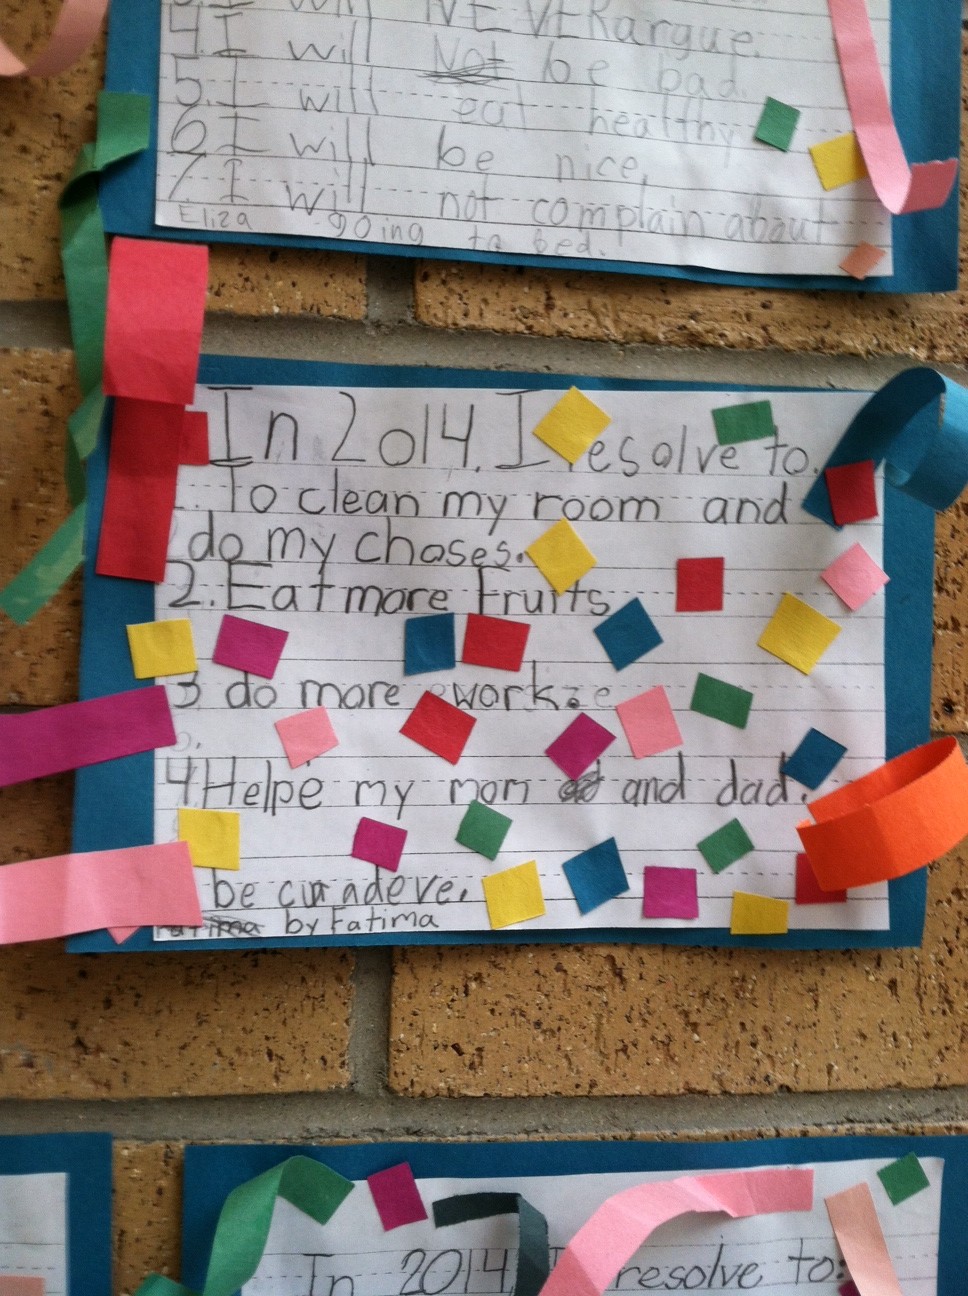 3. I will NEVER argue.
4. I will Not be bad.
5. I will eat healthy
6. I will be nice,
7. I will not complain about
Eliza going to bed.
In 2014, I resolve to.
1. To clean my room and
do my choses.
2. Eat more Fruits
3 do more work
4 Helpe my mom and dad.
be
by Fatima
In 2014, I resolve to: